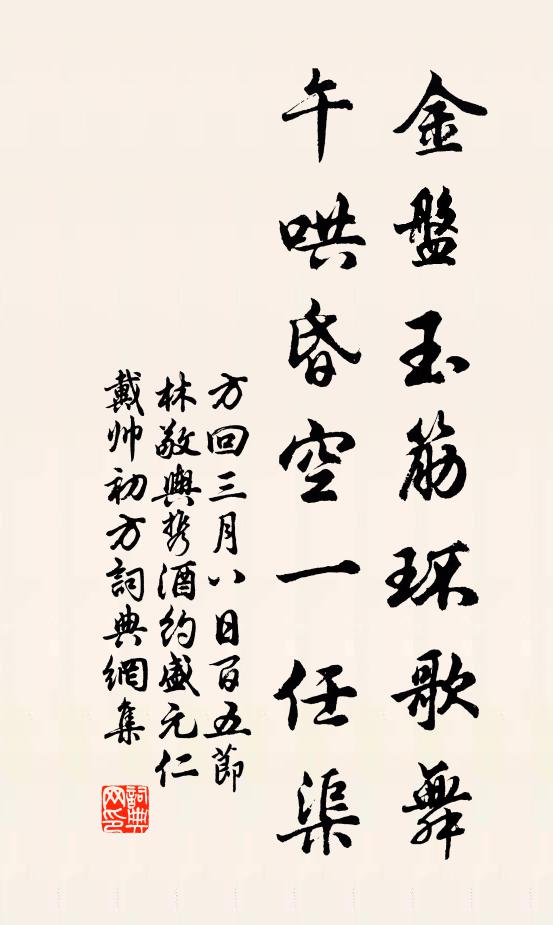 金盤玉筋環歌舞
午哄昏空一任渠
方回三月八日百五節
林敬輿携酒約盛元仁
戴帅初方詞典網集
詞典网印